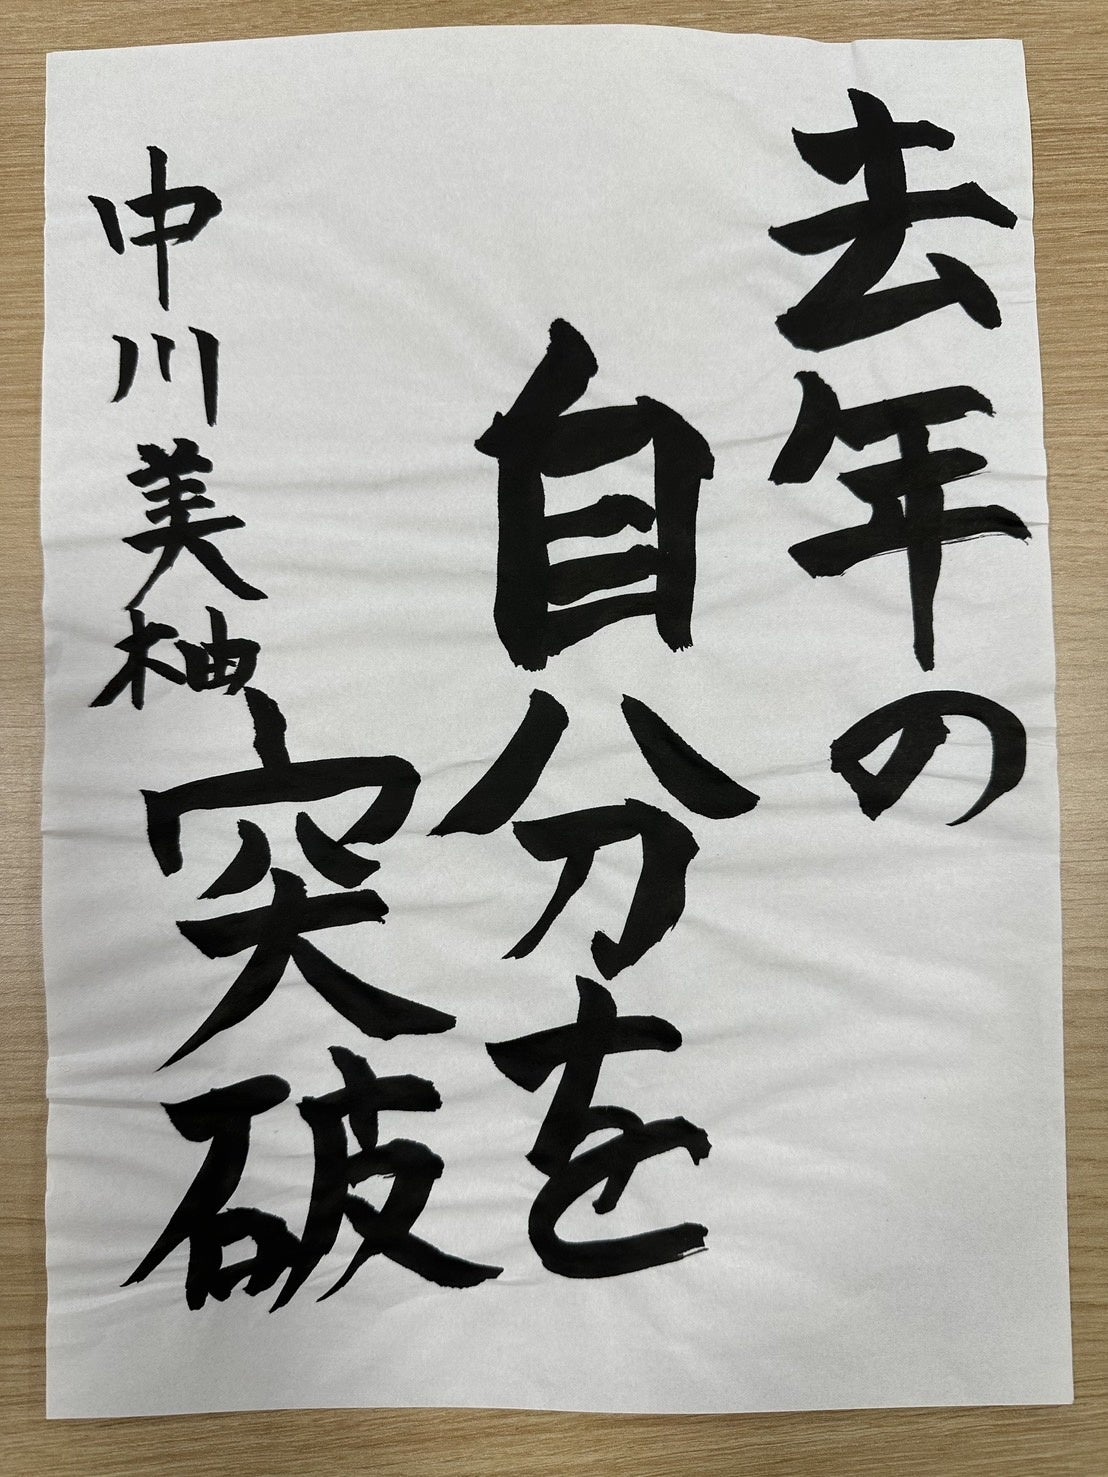 去年の
自分を
突破
中川美柚